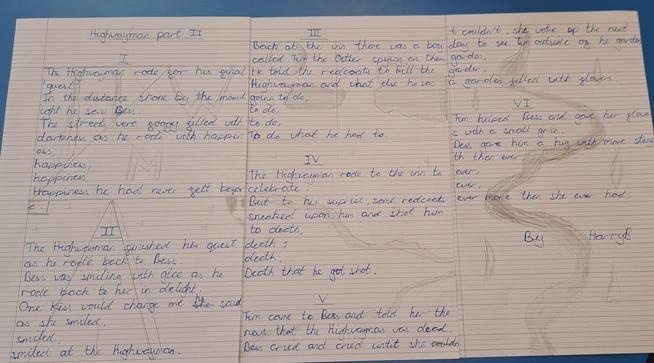 Highwayman part II
I
The Highwayman rode for his final
quest
In the distance shone by the moonl
ight he saw Bess.
The streets were foggy filled with
darkness as he rode with happin
ess,
happiness,
happiness,
Happiness he had never felt before
II
The Highwayman finished his quest
as he rode back to Bess.
Bess was smiling with glee as he
rode back to her in delight.
One kiss would change me she said
as she smiled,
smiled,
smiled at the Highwayman.
III
Back at the inn there was a boy
called Tim the Ostler spying on them
He told the redcoats to kill the
Highwayman and what else he was
going to do,
to do,
to do,
To do what he had to.
IV
The Highwayman rode to the inn to
celebrate
But to his suprise, some redcoats
sneaked upon him and shot him
to death,
death,
death,
Death that he got shot.
V
Tim came to Bess and told her the
news that the Highwayman was dead.
Bess cried and cried until she couldn
t couldn't, she woke up the next
day to see Tim outside of he garden
garden,
garden,
a garden filled with flowers.
VI
Tim helped Bess and gave her flower
s with a small grin.
Bess gave him a hug with more streng
th then ever
ever,
ever,
ever more then she ever had.
By HarryB